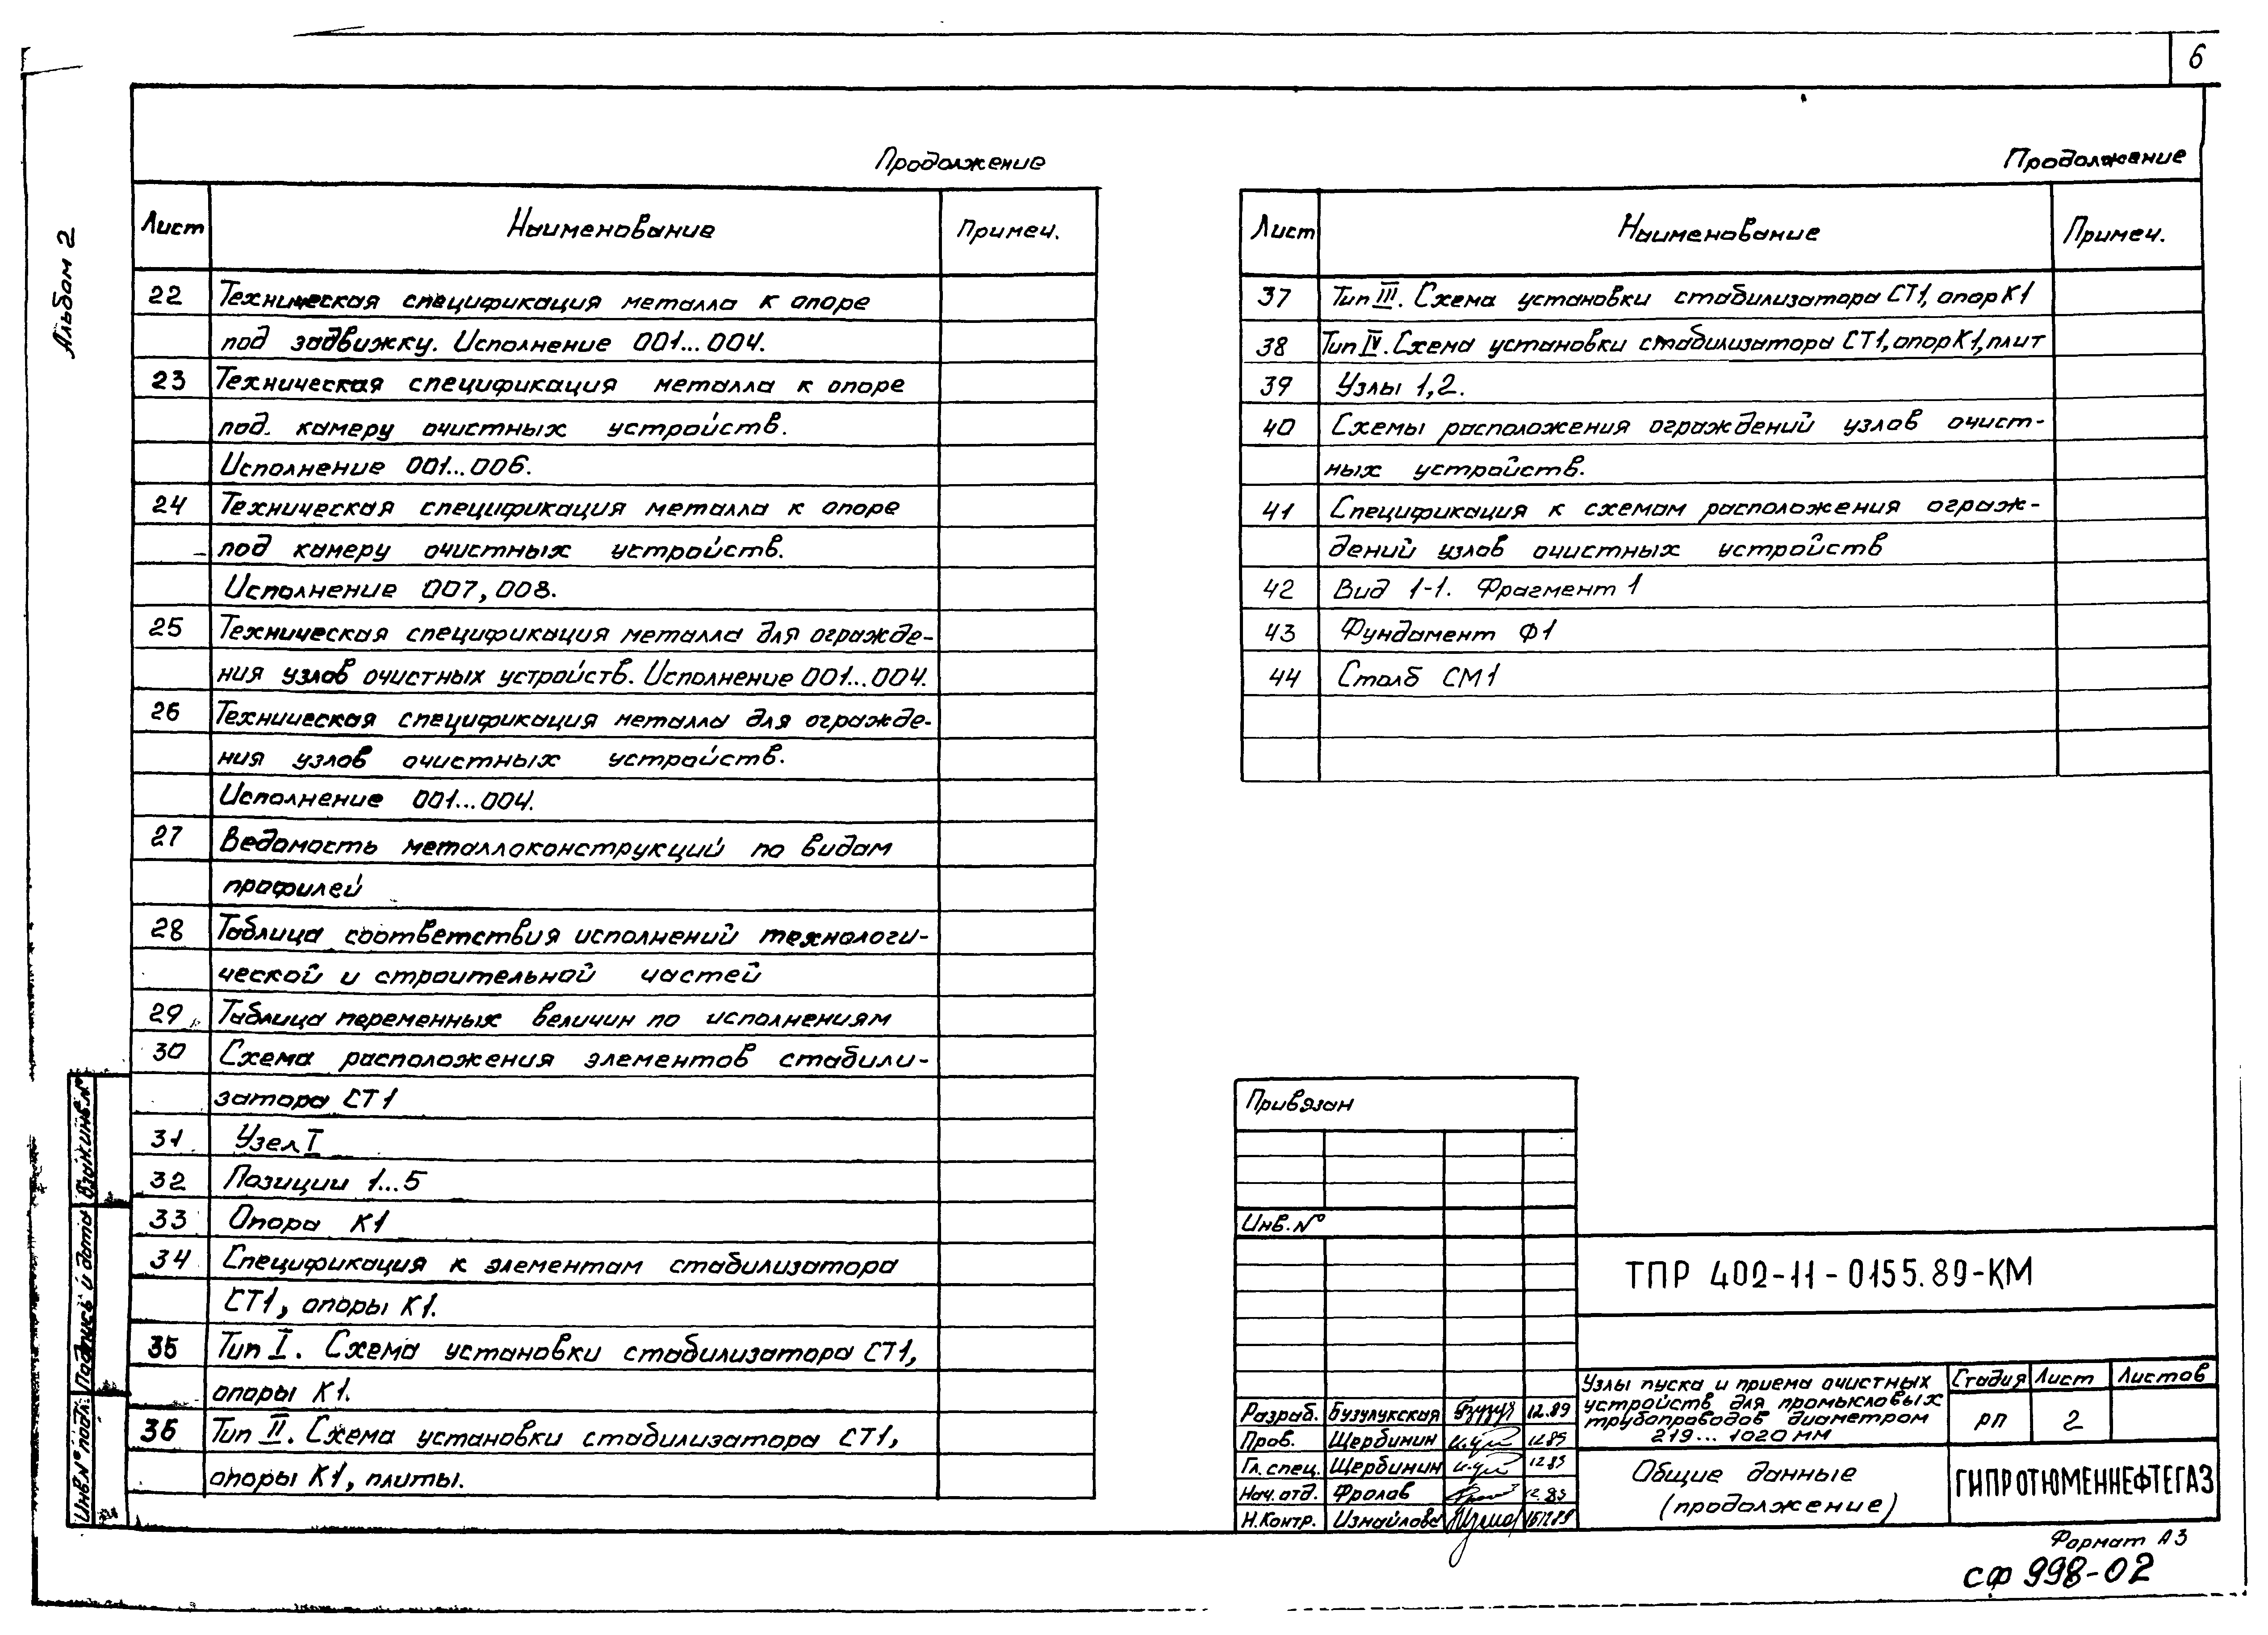 6
Альбом 2
Продолжение
Лист Наименование Примеч.
22 Техническая спецификация металла к опоре
под задвижку. Исполнение 001...004.
23 Техническая спецификация металла к опоре
под камеру очистных устройств.
Исполнение 001...006.
24 Техническая спецификация металла к опоре
под камеру очистных устройств.
Исполнение 007, 008.
25 Техническая спецификация металла для огражде-
ния узлов очистных устройств. Исполнение 001...004.
26 Техническая спецификация металла для огражде-
ния узлов очистных устройств.
Исполнение 001...004.
27 Ведомость металлоконструкций по видам
профилей
28 Таблица соответствия исполнений технологи-
ческой и строительной частей
29 Таблица переменных величин по исполнениям
30 Схема расположения элементов стабили-
затора СТ1
31 Узел I
32 Позиции 1...5
33 Опора К1
34 Спецификация к элементам стабилизатора
СТ1, опоры К1.
35 Тип I. Схема установки стабилизатора СТ1,
опоры К1.
36 Тип II. Схема установки стабилизатора СТ1,
опоры К1, плиты.
Продолжение
Лист Наименование Примеч.
37 Тип III. Схема установки стабилизатора СТ1, опор К1
38 Тип IV. Схема установки стабилизатора СТ1, опор К1, плит
39 Узлы 1,2.
40 Схемы расположения ограждений узлов очист-
ных устройств.
41 Спецификация к схемам расположения ограж-
дений узлов очистных устройств
42 Вид 1-1. Фрагмент 1
43 Фундамент Ф1
44 Столб СМ1
Привязан
Инв. №
ТПР 402-11-0155.89-КМ
Узлы пуска и приема очистных
устройств для промысловых
трубопроводов диаметром
219...1020 мм
Стадия Лист Листов
РП 2
Разраб. Бузулукская 12.89
Пров. Щербинин 12.89
Гл. спец. Щербинин 12.89
Нач. отд. Фролов 12.89
Н. Контр. Измайлова 15.12.89
Общие данные
(продолжение)
ГИПРОТЮМЕННЕФТЕГАЗ
Формат А3
СФ 998-02
Взам. инв. №
Подпись и дата
Инв. № подл.